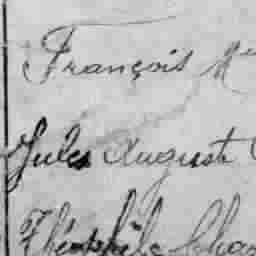 François M
Jules Auguste
Théophile Cha